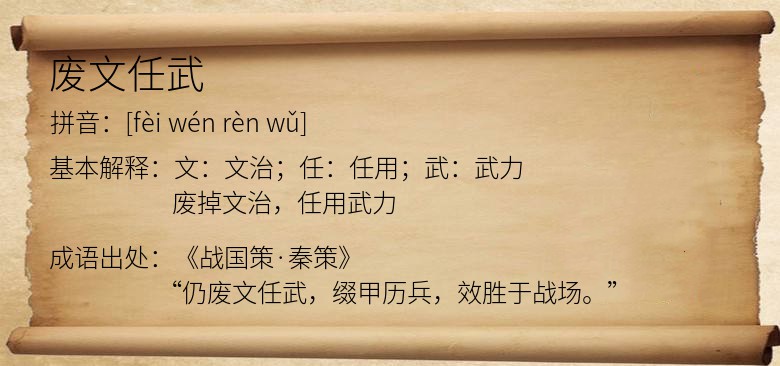 废文任武
拼音：[fèi wén rèn wǔ]
基本解释：文：文治；任：任用；武：武力
废掉文治，任用武力
成语出处：《战国策·秦策》
“仍废文任武，缀甲历兵，效胜于战场。”